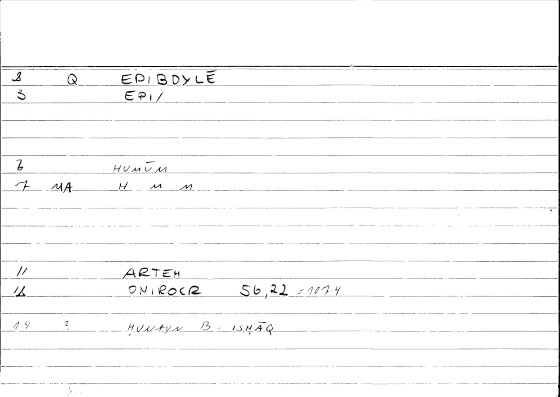 2 Q EPIBOYLĒ
3 EPI/
6 HUMŪM
7 MA H M M
11 ARTEM
12 ONIROCR 56,22 = 107,4
14 ? ḤUNAYN B. ISḤĀQ